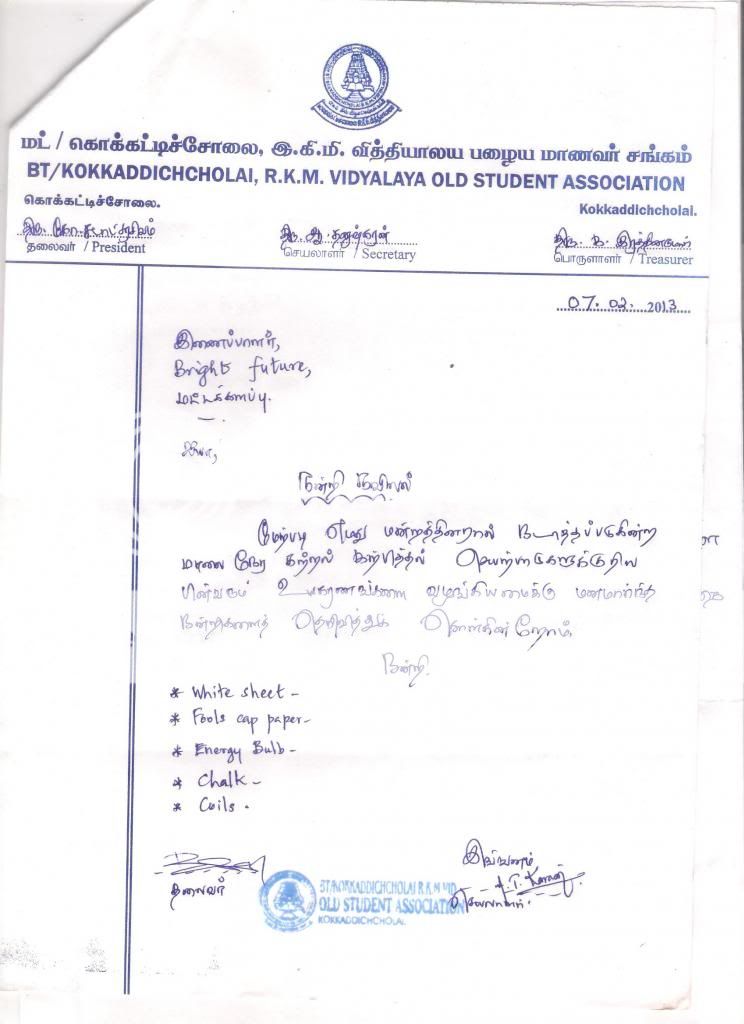 மட் / கொக்கட்டிச்சோலை, இ.கி.மி. வித்தியாலய பழைய மாணவர் சங்கம்
BT/KOKKADDICHCHOLAI, R.K.M. VIDYALAYA OLD STUDENT ASSOCIATION
கொக்கட்டிச்சோலை.
Kokkaddichcholai.
திரு
திரு
திரு
தலைவர் / President
செயலாளர் / Secretary
பொருளாளர் / Treasurer
07. 02. 2013
இணைப்பாளர்,
Bright future,
மட்டக்களப்பு.
ஐயா,
நன்றி நவிலல்
மேற்படி எமது மன்றத்தினரால் நடாத்தப்படுகின்ற
மாலை நேர கற்றல் கற்பித்தல் செயற்பாடுகளுக்குரிய
பின்வரும் உபகரணங்களை வழங்கியமைக்கு மனமார்ந்த
நன்றிகளைத் தெரிவித்துக் கொள்கின்றோம்
நன்றி.
* White sheet -
* Fools cap paper -
* Energy Bulb -
* Chalk -
* Coils .
இவ்வண்ணம்,
தலைவர்
செயலாளர்.
BT/KOKKADDICHCHOLAI R.K.M VID
OLD STUDENT ASSOCIATION
KOKKADDICHCHOLAI.